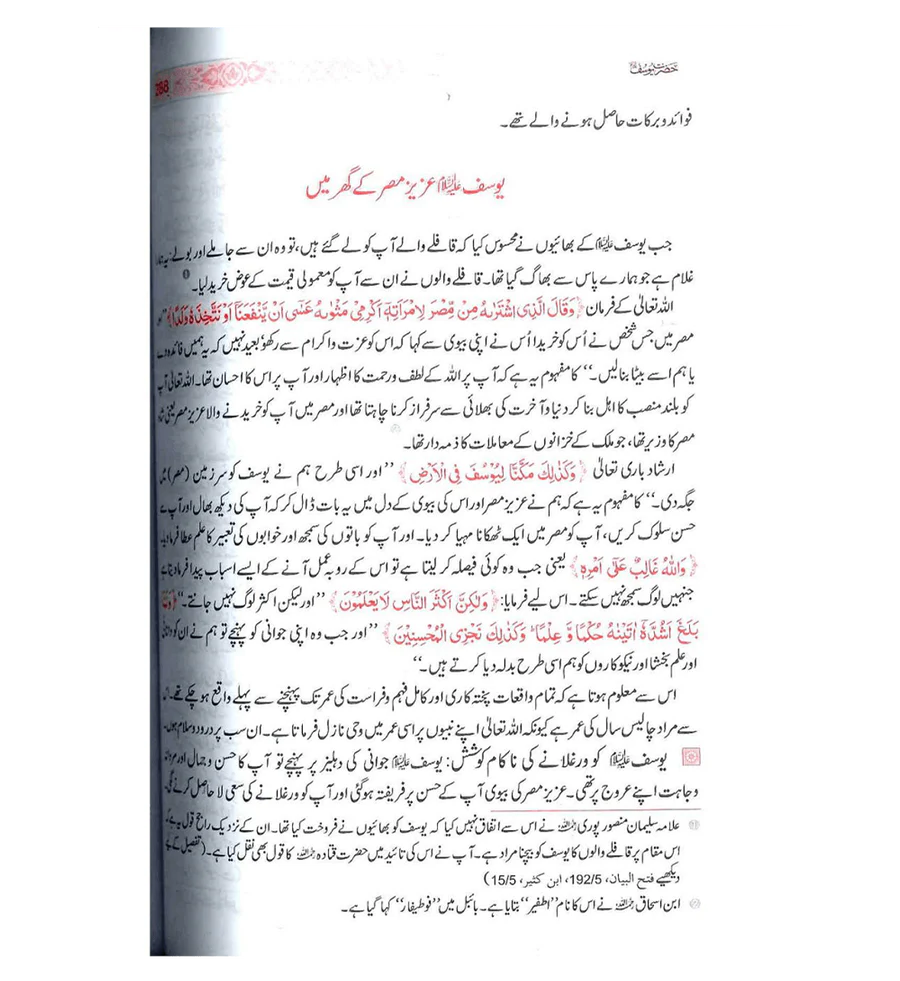 حضرت یوسف
288
فوائد و برکات حاصل ہونے والے تھے۔
یوسف علیہ السلام عزیز مصر کے گھر میں
جب یوسف علیہ السلام کے بھائیوں نے محسوس کیا کہ قافلے والے آپ کو لے گئے ہیں، تو وہ ان سے جا ملے اور بولے: یہ ہمارا
غلام ہے جو ہمارے پاس سے بھاگ گیا تھا۔ قافلے والوں نے ان سے آپ کو معمولی قیمت کے عوض خرید لیا۔
اللہ تعالیٰ کے فرمان ﴿وَقَالَ الَّذِی اشْتَرٰىهُ مِنْ مِّصْرَ لِامْرَاَتِهٖۤ اَكْرِمِیْ مَثْوٰىهُ عَسٰۤى اَنْ یَّنْفَعَنَاۤ اَوْ نَتَّخِذَهٗ وَلَدًا﴾
مصر میں جس شخص نے اُس کو خریدا اُس نے اپنی بیوی سے کہا کہ اس کو عزت و اکرام سے رکھو بعید نہیں کہ یہ ہمیں فائدہ دے
یا ہم اسے بیٹا بنالیں۔‘‘ کا مفہوم یہ ہے کہ آپ پر اللہ کے لطف ورحمت کا اظہار اور آپ پر اس کا احسان تھا۔ اللہ تعالیٰ آپ
کو بلند منصب کا اہل بنا کر دنیا و آخرت کی بھلائی سے سرفراز کرنا چاہتا تھا اور مصر میں آپ کو خریدنے والا عزیز مصر یعنی
مصر کا وزیر تھا، جو ملک کے خزانوں کے معاملات کا ذمہ دار تھا۔
ارشاد باری تعالیٰ ﴿وَكَذٰلِكَ مَكَّنَّا لِیُوْسُفَ فِی الْاَرْضِ﴾ ’’اور اسی طرح ہم نے یوسف کو سرزمین (مصر) میں
جگہ دی۔‘‘ کا مفہوم یہ ہے کہ ہم نے عزیز مصر اور اس کی بیوی کے دل میں یہ بات ڈال کر کہ آپ کی دیکھ بھال اور آپ سے
حسن سلوک کریں، آپ کو مصر میں ایک ٹھکانا مہیا کر دیا۔ اور آپ کو باتوں کی سمجھ اور خوابوں کی تعبیر کا علم عطا فرمادیا۔
﴿وَاللّٰهُ غَالِبٌ عَلٰۤى اَمْرِهٖ﴾ یعنی جب وہ کوئی فیصلہ کر لیتا ہے تو اس کے روبہ عمل آنے کے ایسے اسباب پیدا فرمادیتا ہے
جنہیں لوگ سمجھ نہیں سکتے۔ اس لیے فرمایا: ﴿وَلٰكِنَّ اَكْثَرَ النَّاسِ لَا یَعْلَمُوْنَ﴾ ’’اور لیکن اکثر لوگ نہیں جانتے۔‘‘ ﴿وَلَمَّا
بَلَغَ اَشُدَّهٗۤ اٰتَیْنٰهُ حُكْمًا وَّ عِلْمًا ؕ وَكَذٰلِكَ نَجْزِی الْمُحْسِنِیْنَ﴾ ’’اور جب وہ اپنی جوانی کو پہنچے تو ہم نے ان کو
اور علم بخشا اور نیکوکاروں کو ہم اسی طرح بدلہ دیا کرتے ہیں۔‘‘
اس سے معلوم ہوتا ہے کہ تمام واقعات پختہ کاری اور کامل فہم وفراست کی عمر تک پہنچنے سے پہلے واقع ہو چکے تھے۔
سے مراد چالیس سال کی عمر ہے کیونکہ اللہ تعالیٰ اپنے نبیوں پر اسی عمر میں وحی نازل فرماتا ہے۔ ان سب پر درود وسلام ہوں۔
یوسف علیہ السلام کو ورغلانے کی ناکام کوشش: یوسف علیہ السلام جوانی کی دہلیز پر پہنچے تو آپ کا حسن و جمال اور
وجاہت اپنے عروج پر تھی۔ عزیز مصر کی بیوی آپ کے حسن پر فریفتہ ہوگئی اور آپ کو ورغلانے کی سعی لا حاصل کرنے لگی۔
علامہ سلیمان منصور پوری رحمہ اللہ نے اس سے اتفاق نہیں کیا کہ یوسف کو بھائیوں نے فروخت کیا تھا۔ ان کے نزدیک راجح قول یہ ہے کہ
اس مقام پر قافلے والوں کا یوسف کو بیچنا مراد ہے۔ آپ نے اس کی تائید میں حضرت قتادہ رحمہ اللہ کا قول بھی نقل کیا ہے۔ (تفصیل کے لیے
دیکھیے فتح البیان، 192/5، ابن کثیر، 15/5)
ابن اسحاق رحمہ اللہ نے اس کا نام ’’اطفیر‘‘ بتایا ہے۔ بائبل میں ’’فوطیفار‘‘ کہا گیا ہے۔